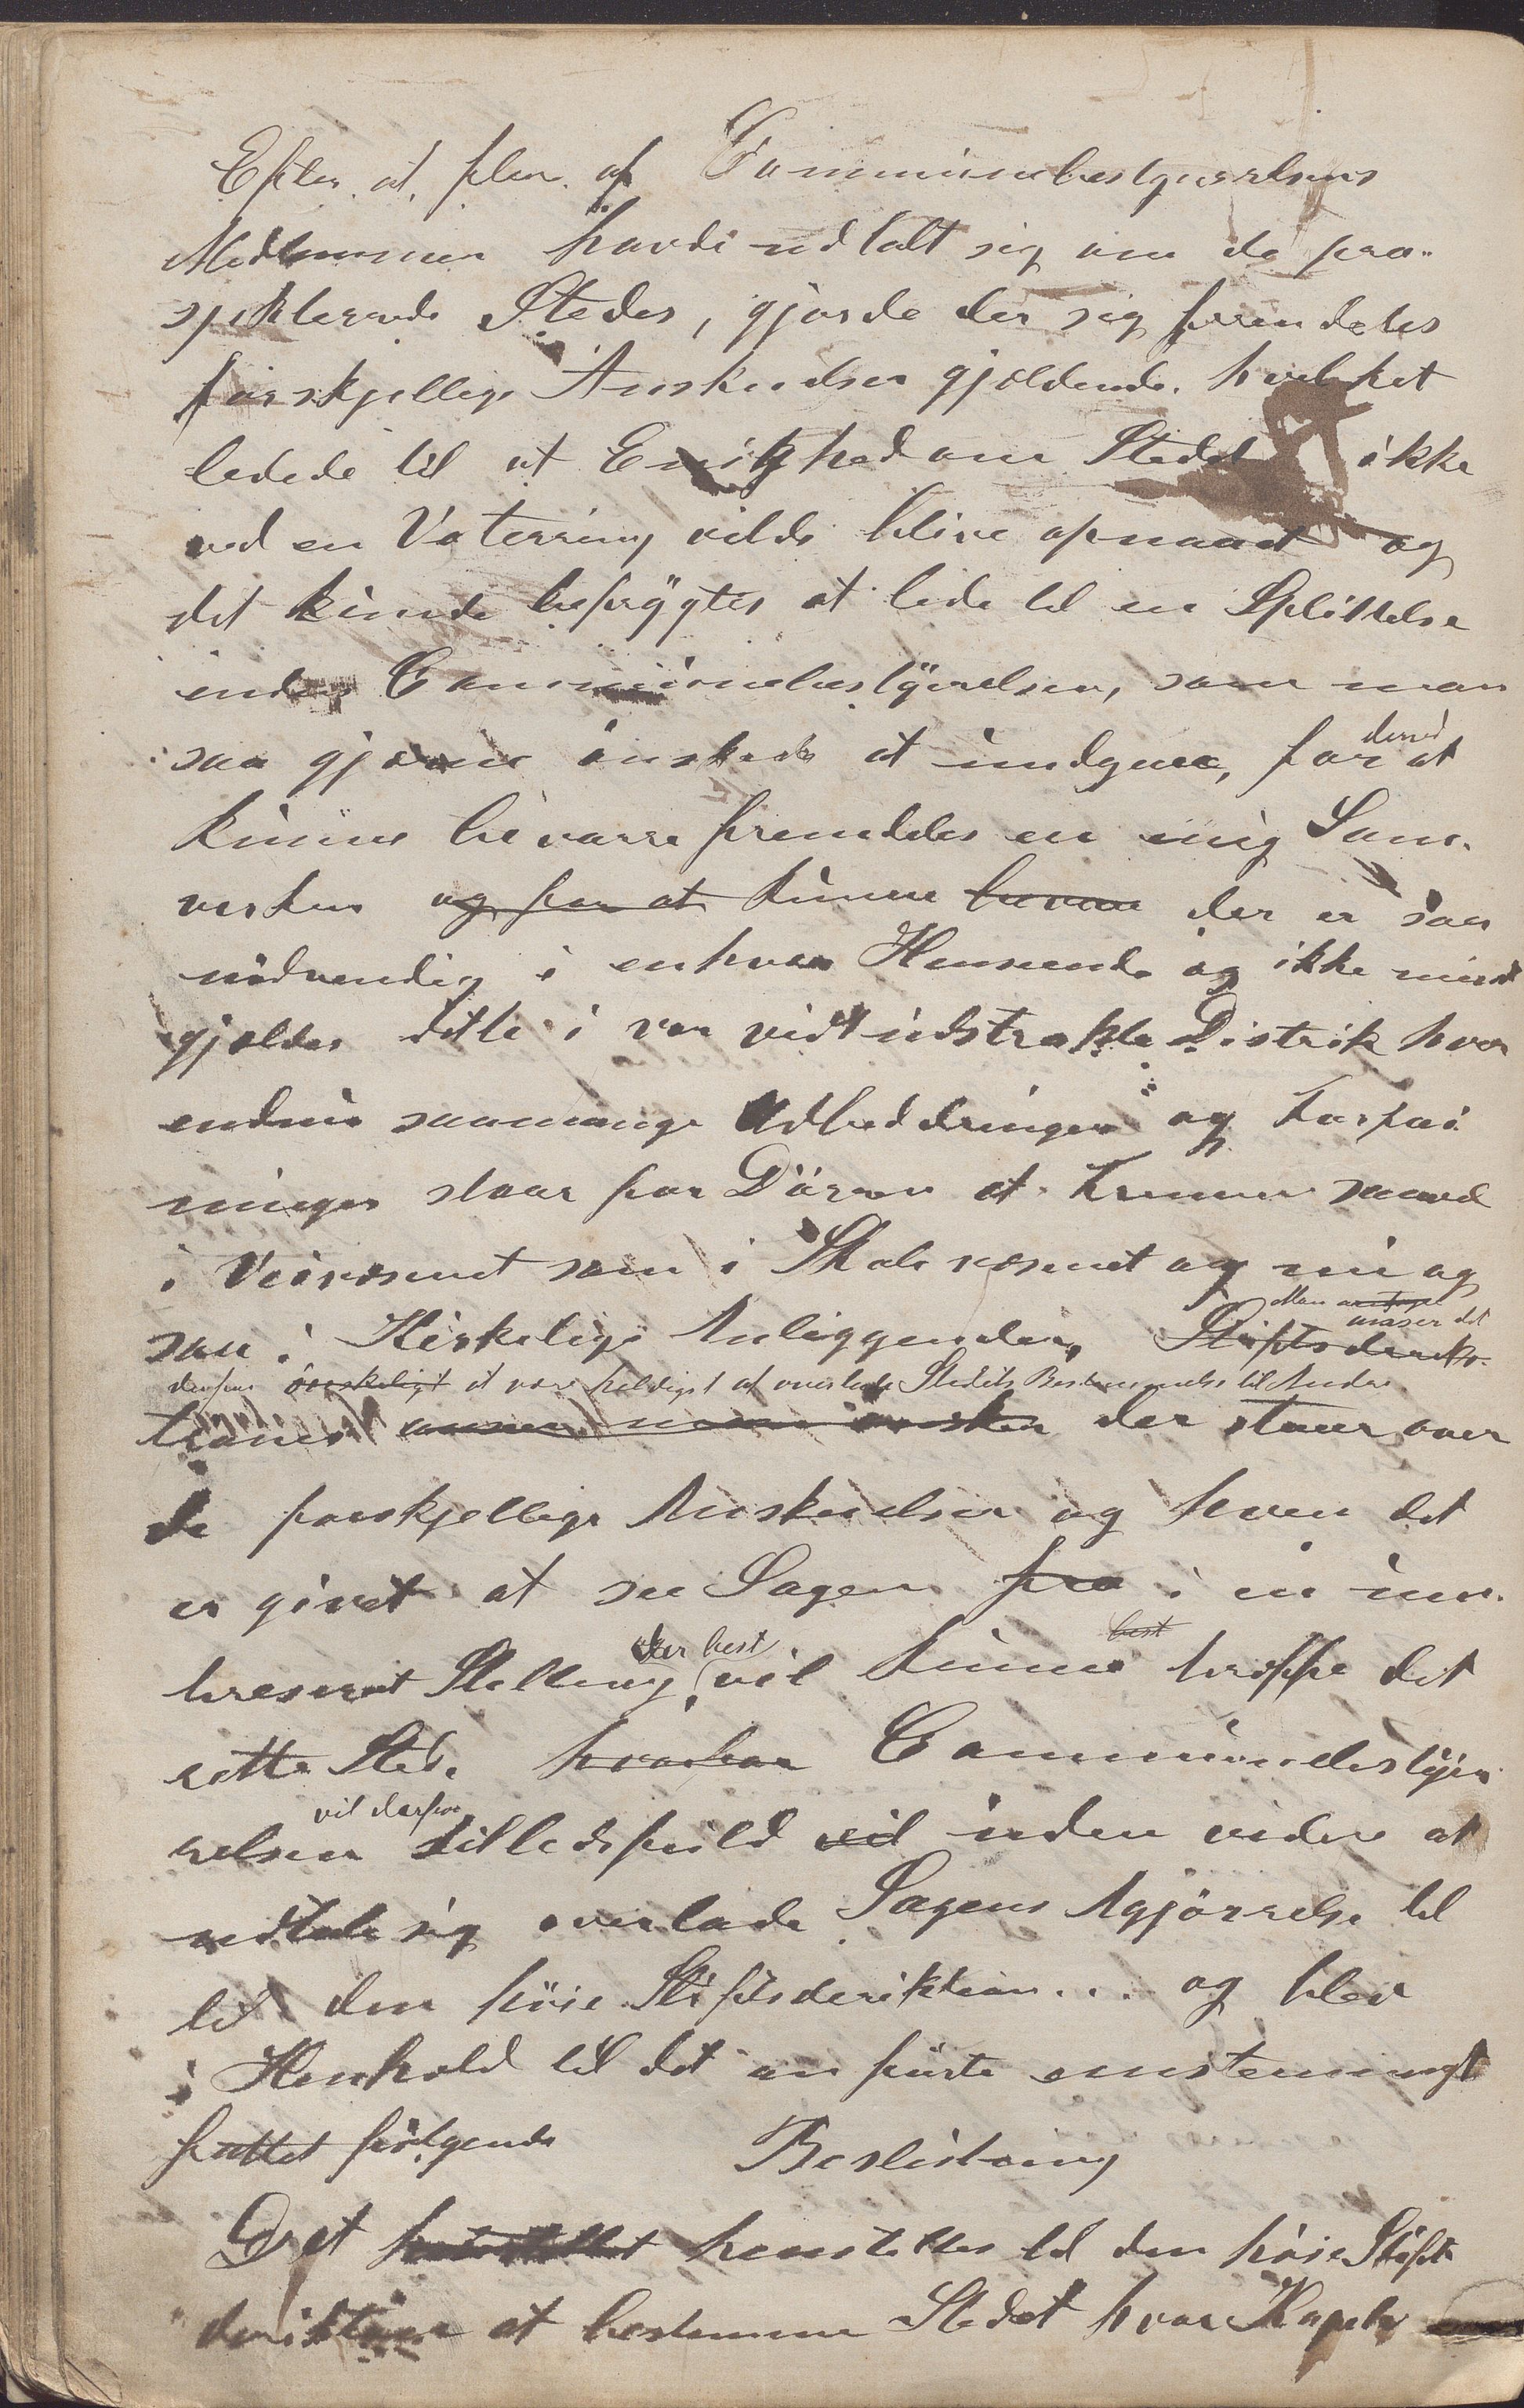 Efter at flere af Communebestyrelsens
Medlemmer havde udtalt sig om de pro-
spikterede Steder, gjorde der sig fremdeles
forskjellige Anskuelser gjældende. hvilket
ledede til at Enighed om Stedet ikke
ved en Votering vilde blive opnaaet og
det kunde befrÿgtes at lede til en Splittelse
inden Communebestÿrelsen, som man
saa gjærne ønskede at undgaae, for derved at
kunne bevare fremdeles en enig Sam-
virken og for at kunne bevare der er saa
nødvendig i enhver Henseende og ikke mindst
gjælder dette i vor vidtudstrakte Distrik hvor
endnu saamange Udbeddringer og Forføi
ninger staar for Døren at fremme saavel
i Veivæsenet som i Skolevæsenet og nu og
saa i Kirkelige Anliggender, Stiftsderek- Man antager anser det
derfor ønskeligt at være heldigst at overlade Stedets Bestemmelse til Andre
tionen anser man ønsker der staar over
de forskjellige Anskuelser og hvem det
er givet at see Sagen fra i en uin-
treseret Stilling, der best vil kunne best træffe det
rette Sted. hvorfor Communebestÿr-
relsen vil derfor tillidsfuld vil uden videre at
udtale sig overlade Sagens Afgjørrelse til
til den høie Stiftsderiktion... og blev
i Henhold til det anførte enstemmigt
fattet følgende Beslutning
Det henstillet henstilles til den høie Stifts
deriktion at bestemme Stedet hvor Kapelet